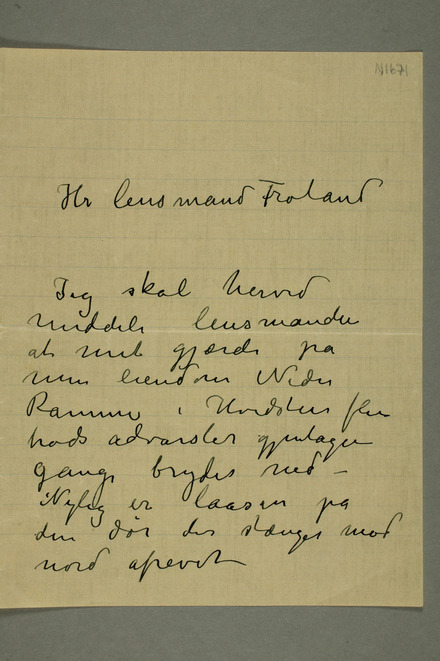 N1671
Hr lensmand Froland
Jeg skal herved
meddele lensmanden
at mit gjærde på
min eiendom Nedre
Ramme i Hvidsten
trods advarsler gjentagne
gange brydes ned –
Nylig er laasen på
den dør der stænges mod
nord afrevet